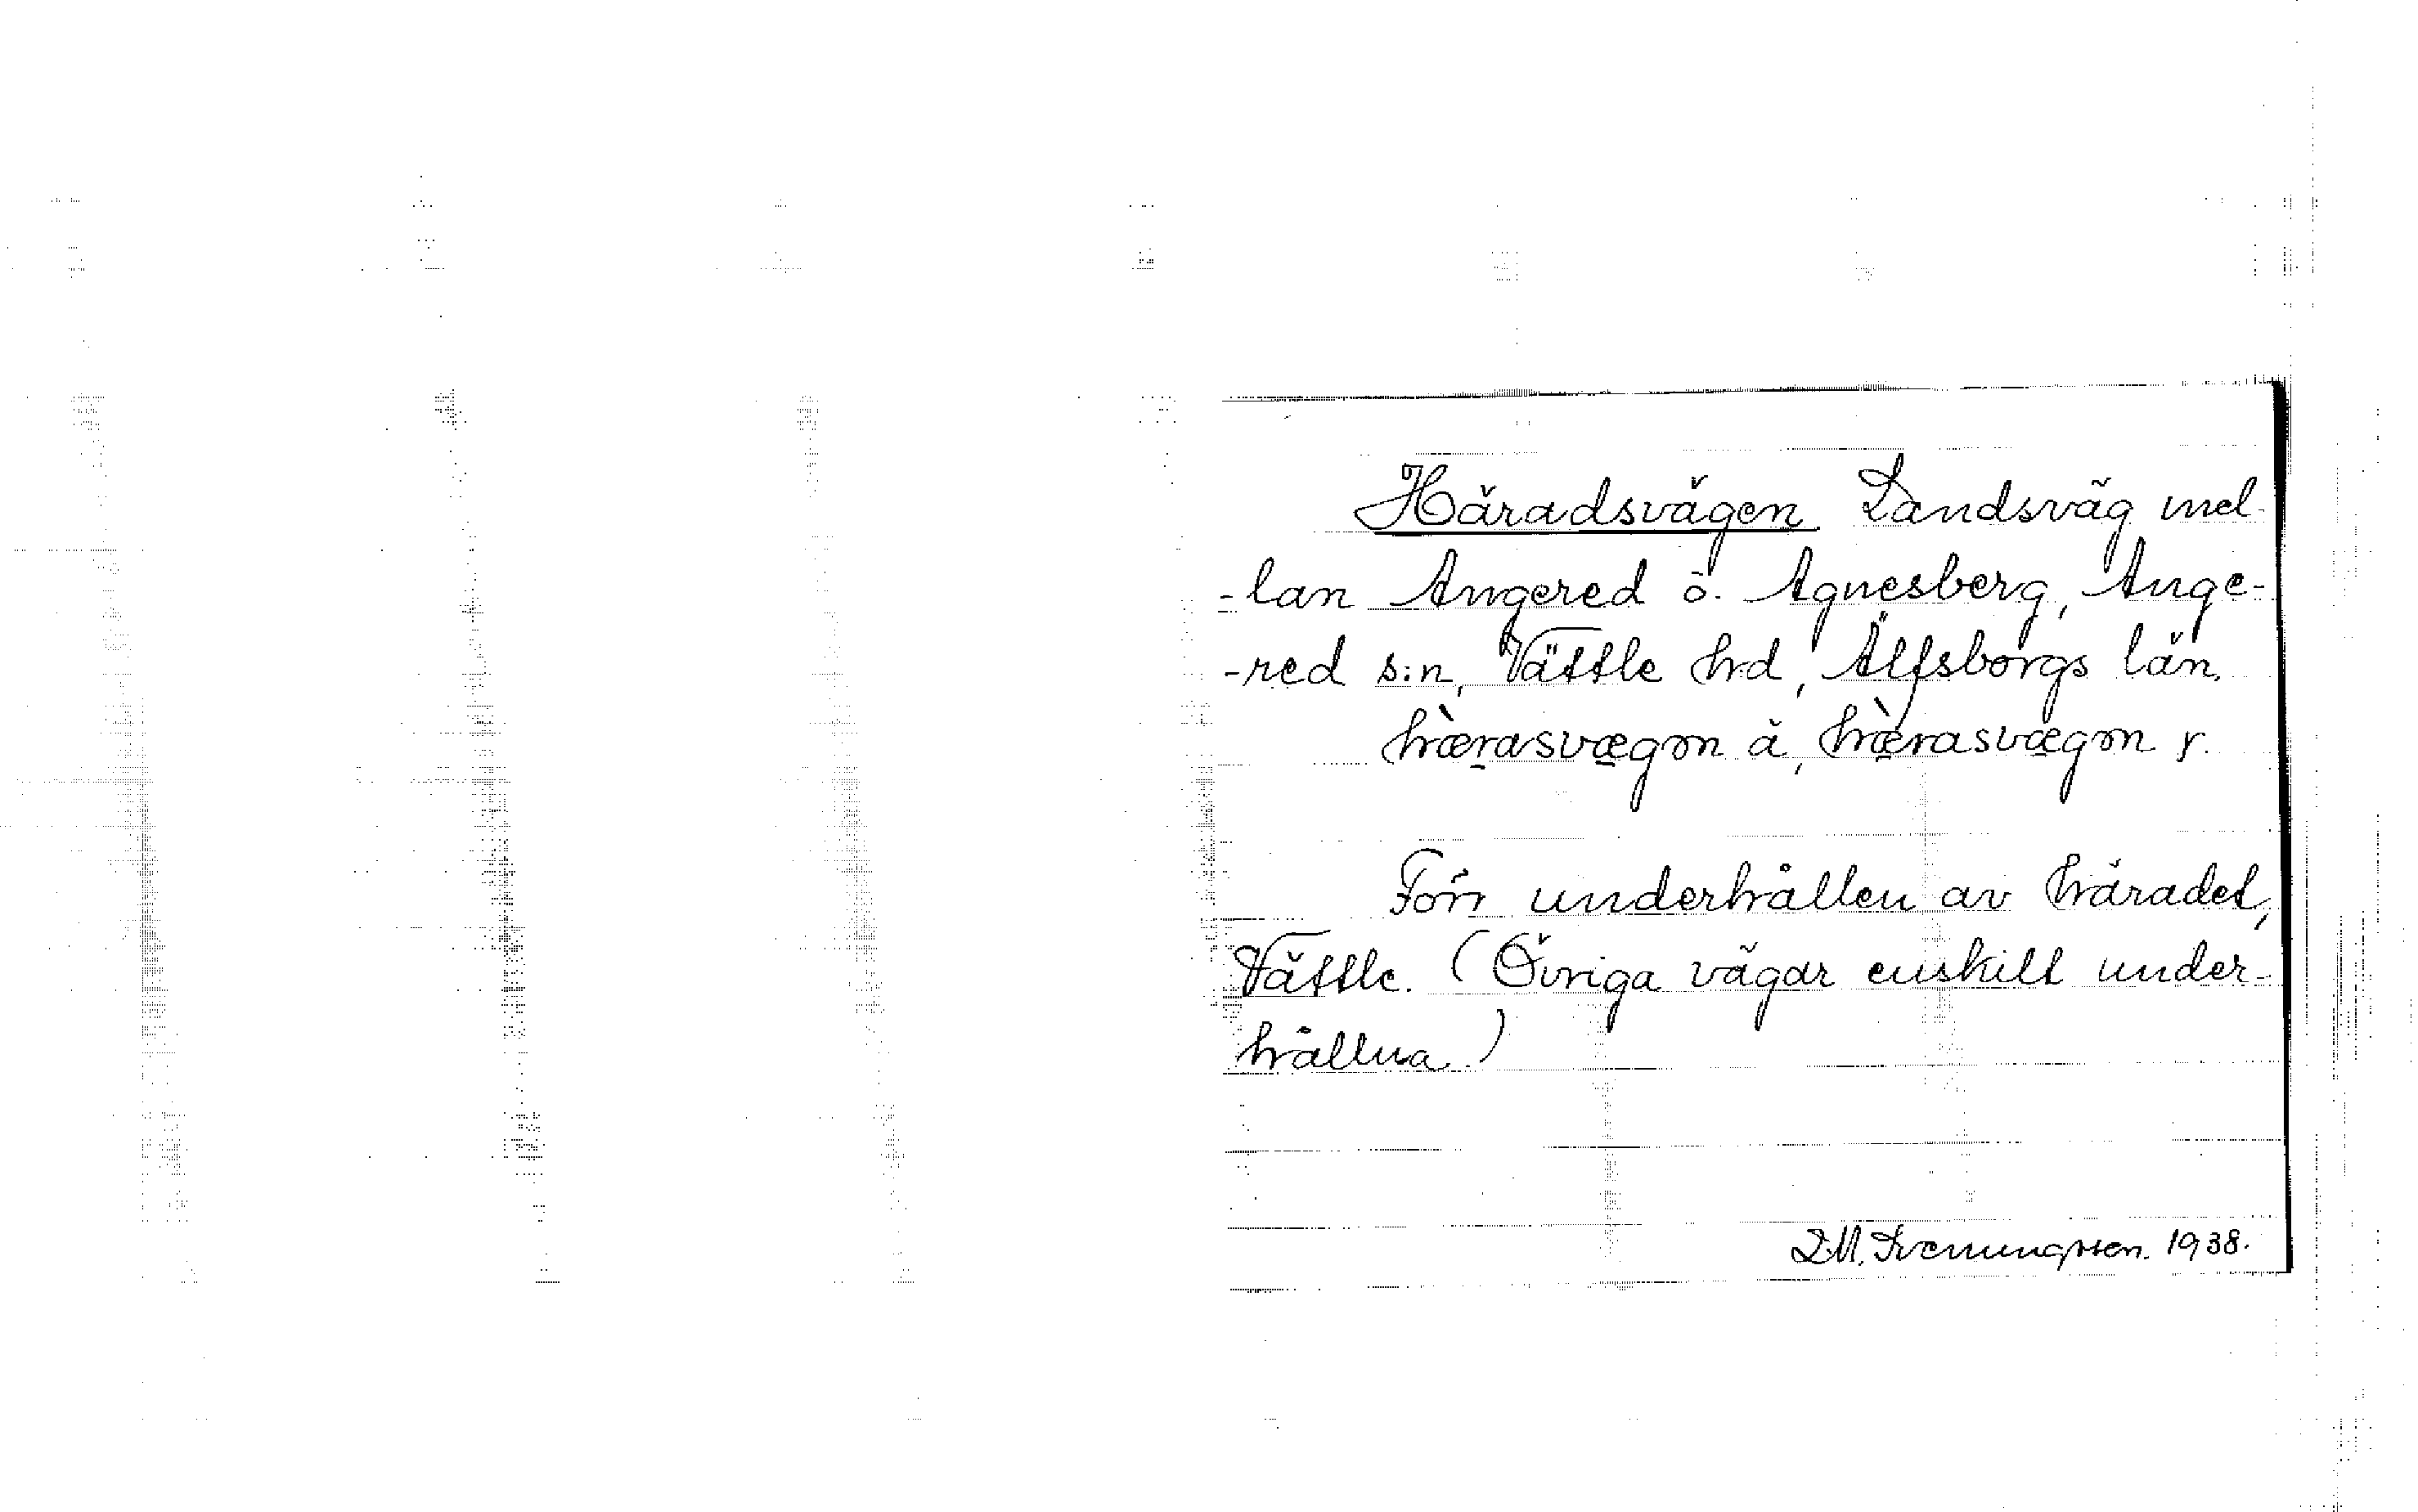 Häradsvägen Landsväg mel-
-lan Angered o. Agnesberg, Ange-
-red s:n, Vättle hrd, Älfsborgs län.
hærasvægən ä, hærasvægən y.
Förr underhållen av häradet,
Vättle. (Övriga vägar enskilt under-
hållna.)
1938.